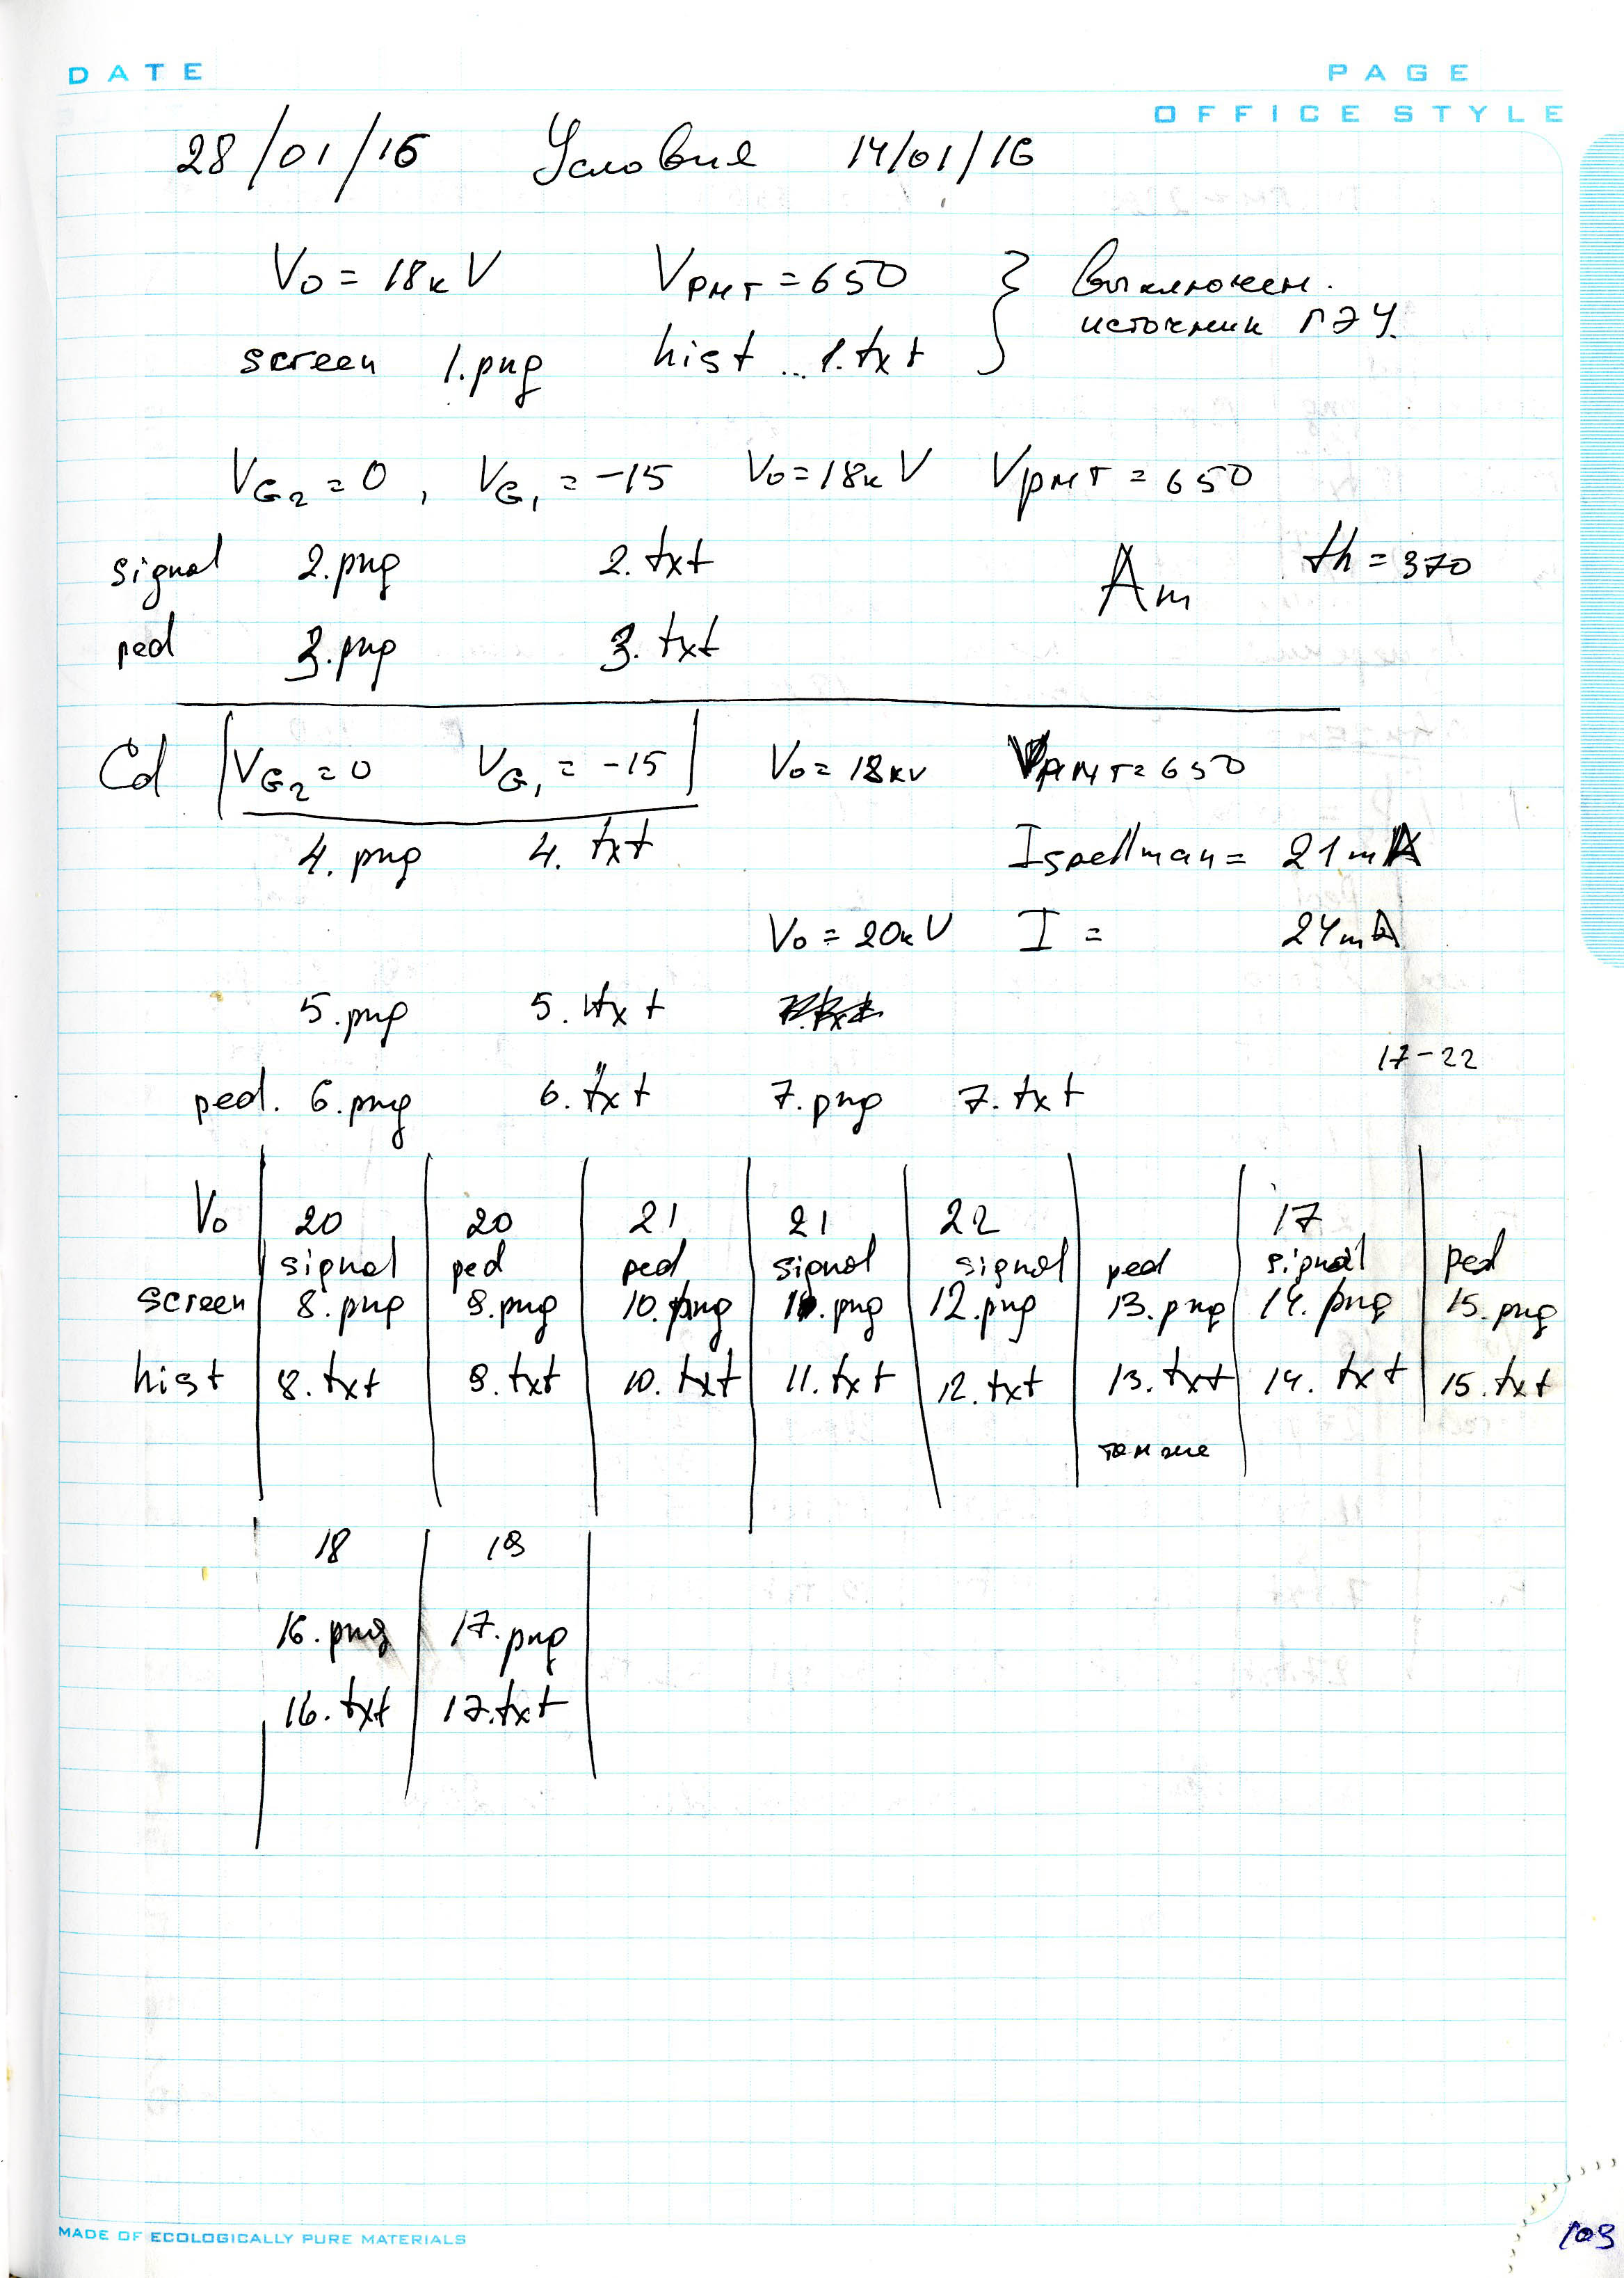 DATE
PAGE
OFFICE STYLE
28/01/16 Условия 14/01/16
V0 = 18кV VPMT = 650 } Выключен.
источник ГЭУ.
screen 1.png hist ... 1.txt
VG2 = 0, VG1 = -15 V0 = 18кV VPMT = 650
signal 2.png 2.txt Am th = 370
ped 3.png 3.txt
Cd |VG2 = 0 VG1 = -15| V0 = 18кV VPMT = 650
4.png 4.txt Ispellman = 21mA
V0 = 20кV I = 24mA
5.png 5.txt
17-22
ped. 6.png 6.txt 7.png 7.txt
V0 | 20 | 20 | 21 | 21 | 22 | | 17 |
signal | ped | ped | signal | signal | ped | signal | ped
screen | 8.png | 9.png | 10.png | 11.png | 12.png | 13.png | 14.png | 15.png
hist | 8.txt | 9.txt | 10.txt | 11.txt | 12.txt | 13.txt | 14.txt | 15.txt
там же
18 | 19
16.png | 17.png
16.txt | 17.txt
MADE OF ECOLOGICALLY PURE MATERIALS
109